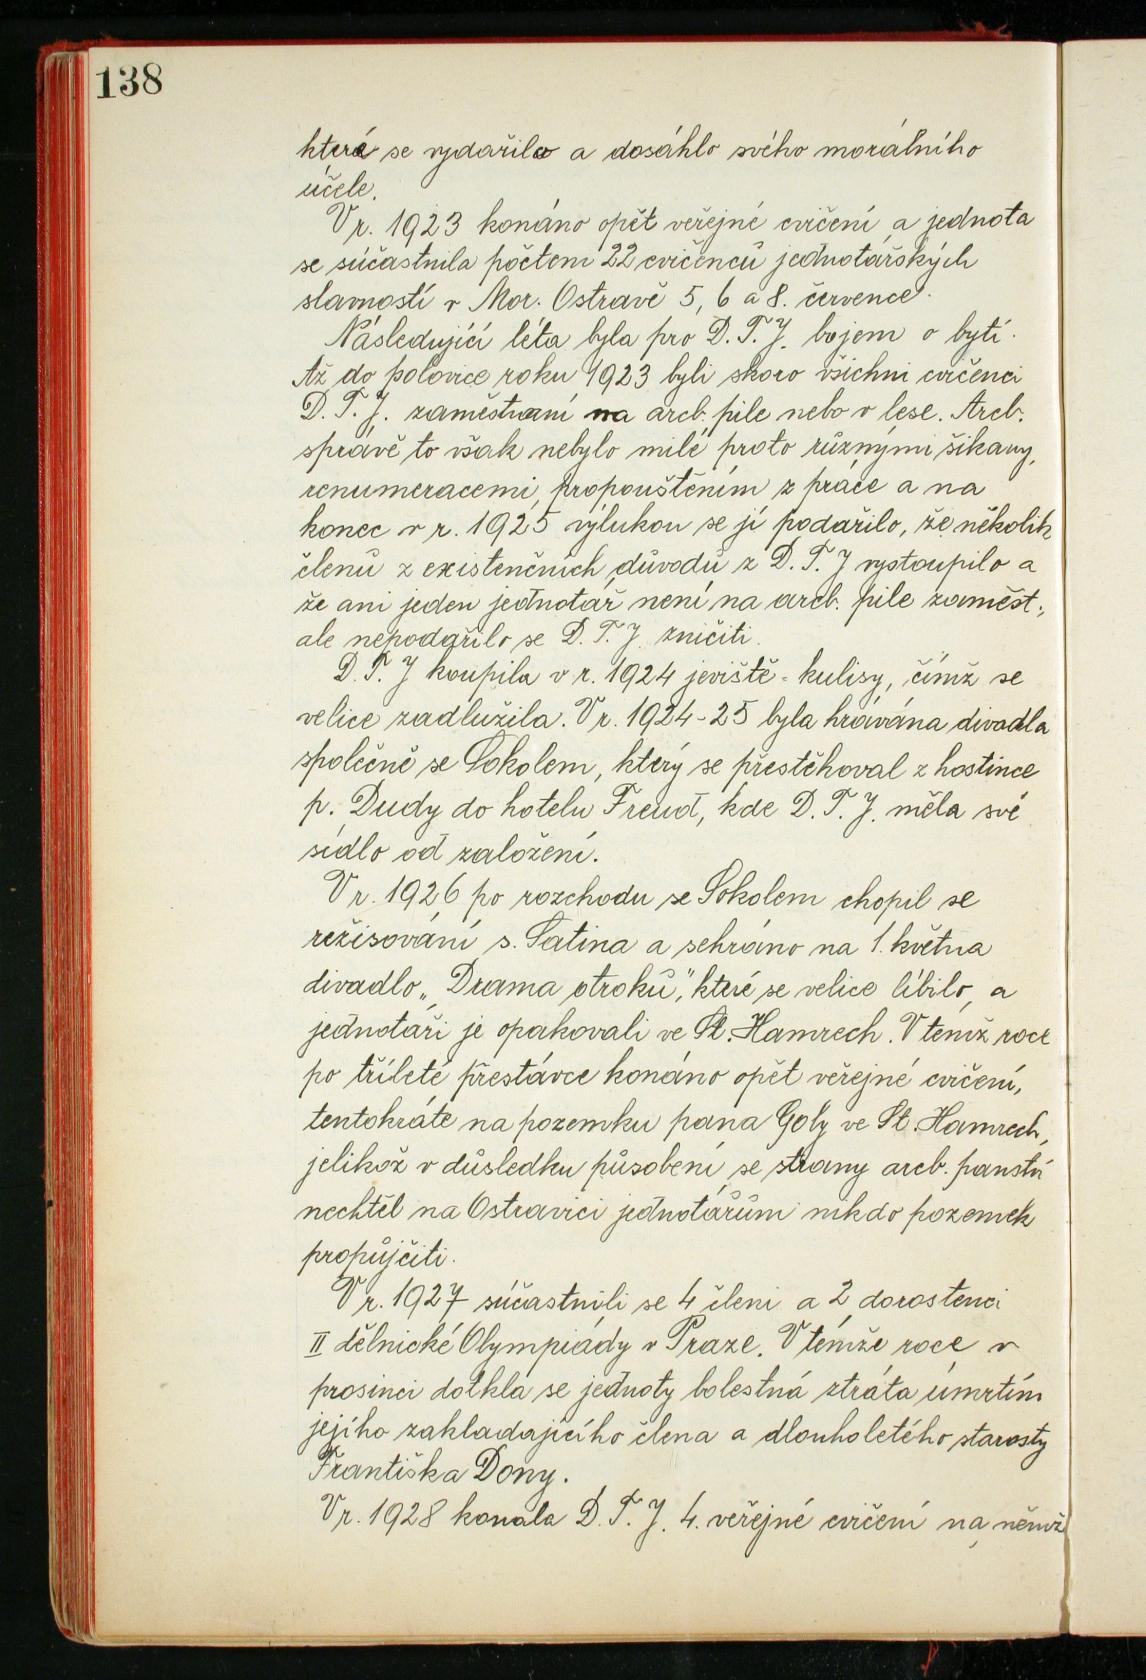 138
které se vydařilo a dosáhlo svého morálního
účele.
V r. 1923 konáno opět veřejné cvičení a jednota
se súčastnila počtem 22 cvičenců jednotářských
slavností v Mor. Ostravě 5, 6 a 8. července.
Následující léta byla pro D. T. J. bojem o bytí.
Až do polovice roku 1923 byli skoro všichni cvičenci
D. T. J. zaměstnaní na arcb. pile nebo v lese. Arcb.
správě to však nebylo milé proto různými šikany,
renumeracemi, propouštěním z práce a na
konec v r. 1925 výlukou se jí podařilo, že několik
členů z existenčních důvodů z D. T. J vystoupilo a
že ani jeden jednotář není na arcb. pile zaměst.,
ale nepodařilo se D. T. J. zničiti.
D. T. J koupila v r. 1924 jeviště - kulisy, čímž se
velice zadlužila. V r. 1924-25 byla hrávána divadla
společně se Sokolem, který se přestěhoval z hostince
p. Dudy do hotelu Freud, kde D. T. J. měla své
sídlo od založení.
V r. 1926 po rozchodu se Sokolem chopil se
režisování s. Satina a sehráno na 1. května
divadlo „Drama otroků", které se velice líbilo, a
jednotáři je opakovali ve St. Hamrech. V témž roce
po tříleté přestávce konáno opět veřejné cvičení,
tentokráte na pozemku pana Goly ve St. Hamrech,
jelikož v důsledku působení se strany arcb. panství
nechtěl na Ostravici jednotářům nikdo pozemek
propůjčiti.
V r. 1927 súčastnili se 4 členi a 2 dorostenci
II dělnické Olympiády v Praze. V témže roce v
prosinci dotkla se jednoty bolestná ztráta úmrtím
jejího zakladajícího člena a dlouholetého starosty
Františka Dony.
V r. 1928 konala D. T. J. 4. veřejné cvičení na němž